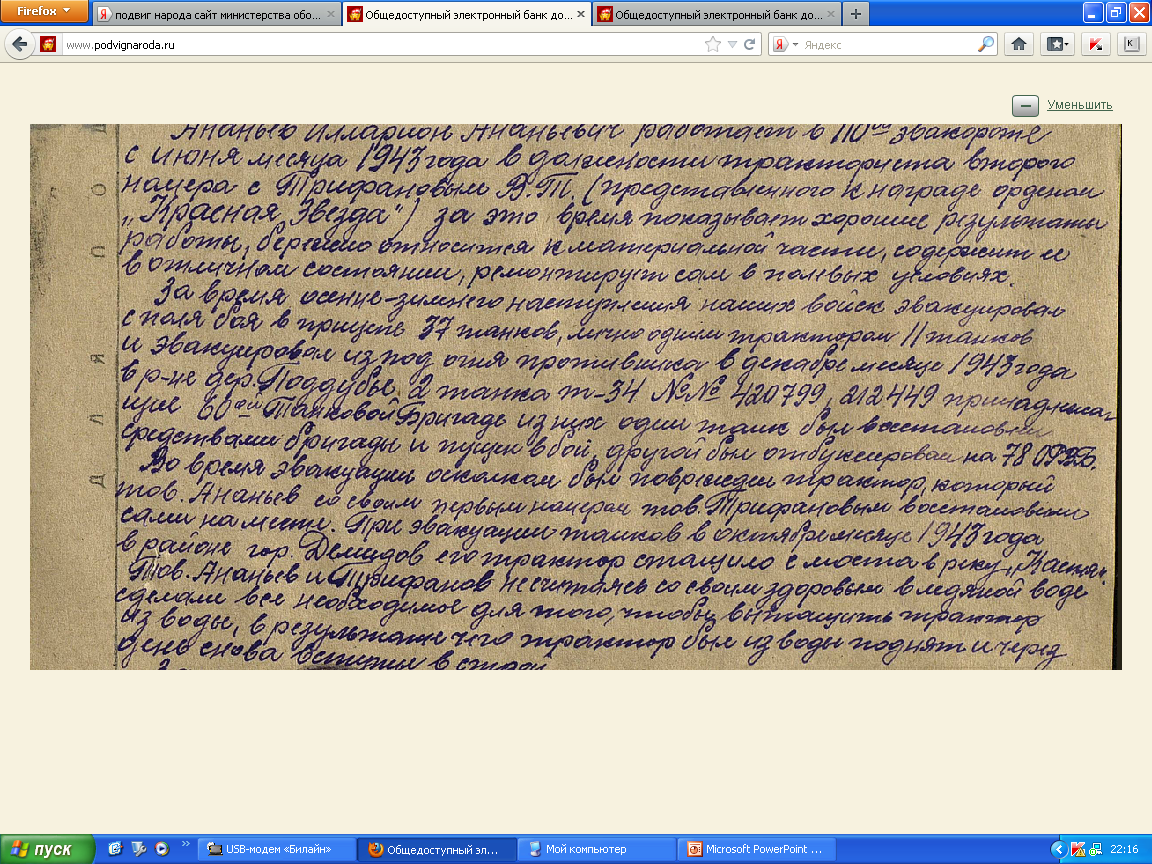 Firefox
подвиг народа сайт министерства обо...
Общедоступный электронный банк до...
Общедоступный электронный банк до...
www.podvignaroda.ru
Яндекс
Уменьшить
Ананьев Илларион Ананьевич работает в 110ой эвакороте
с июня месяца 1943 года в должности тракториста второго
номера с Трифановым В.Т. (представленного к награде орденом
„Красная Звезда") за это время показывает хорошие результаты
работы, бережно относится к материальной части, содержит ее
в отличном состоянии, ремонтирует сам в полевых условиях.
За время осенне-зимнего наступления наших войск эвакуировал
с поля боя в прицепе 37 танков, лично одним трактором 11 танков
и эвакуировал из под огня противника в декабре месяце 1943 года
в р-не дер. Поддубье 2 танка т-34 №№ 420799, 212449 принадлежа-
щие 60ой Танковой Бригаде из них один танк был восстановлен
средствами бригады и пущен в бой, другой был отбуксирован на 78
Во время эвакуации осколком был поврежден трактор, который
тов. Ананьев со своим первым номером тов. Трифановым восстановили
сами на месте. При эвакуации танков в октябре месяце 1943 года
в районе гор. Демидов его трактор стащило с моста в реку
Тов. Ананьев и Трифанов не считаясь со своим здоровьем в ледяной воде
сделали все необходимое для того, чтобы вытащить трактор
из воды, в результате чего трактор был из воды поднят и через
день снова вступил в строй
Д Л Я П О Д
пуск
USB-модем «Билайн»
Общедоступный эл...
Мой компьютер
Microsoft PowerPoint ...
22:16